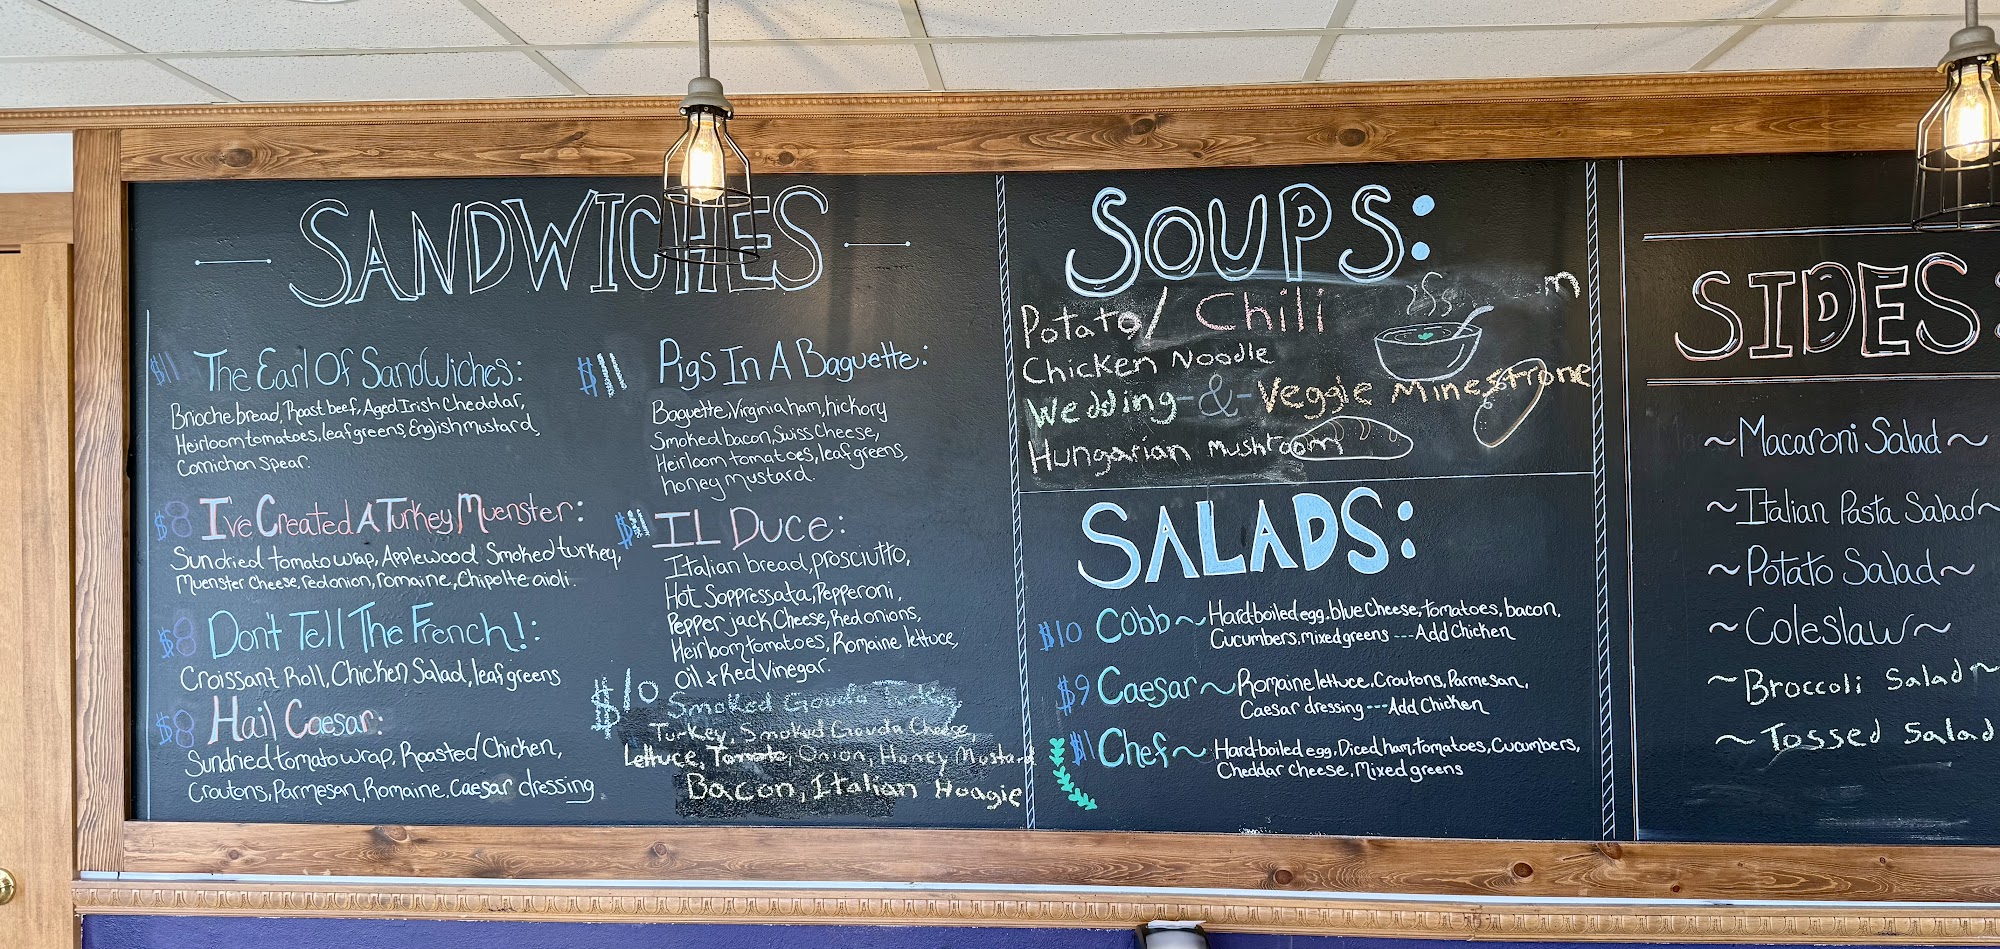 SANDWICHES
$11 The Earl Of Sandwiches:
Brioche bread, Roast beef, Aged Irish Cheddar,
Heirloom tomatoes, leaf greens, English mustard,
Cornichon Spear.
$8 I've Created A Turkey Muenster:
Sundried tomato wrap, Applewood Smoked turkey,
Muenster Cheese, red onion, romaine, Chipolte aioli.
$8 Don't Tell The French!:
Croissant Roll, Chicken Salad, leaf greens
$8 Hail Caesar:
Sundried tomato wrap, Roasted Chicken,
Croutons, Parmesan, Romaine, Caesar dressing
$11 Pigs In A Baguette:
Baguette, Virginia ham, hickory
Smoked bacon, Swiss Cheese,
Heirloom tomatoes, leaf greens,
honey mustard.
$11 IL DUCE:
Italian bread, prosciutto,
Hot Soppressata, Pepperoni,
Pepper jack Cheese, Red onions,
Heirloom tomatoes, Romaine lettuce,
Oil & Red Vinegar.
$10 Smoked Gouda Turkey
Turkey, Smoked Gouda Cheese,
Lettuce, Tomato, Onion, Honey Mustard
Bacon, Italian Hoagie
SOUPS:
Potato/ Chili
Chicken Noodle
Wedding -&- Veggie Minestrone
Hungarian Mushroom
SALADS:
$10 Cobb~ Hard-boiled egg, blue Cheese, tomatoes, bacon,
Cucumbers, mixed greens --- Add Chicken
$9 Caesar~ Romaine lettuce, Croutons, Parmesan,
Caesar dressing --- Add Chicken
$11 Chef~ Hard-boiled egg, Diced ham, tomatoes, Cucumbers,
Cheddar cheese, Mixed greens
SIDES:
~Macaroni Salad~
~Italian Pasta Salad~
~Potato Salad~
~Coleslaw~
~Broccoli Salad~
~Tossed Salad